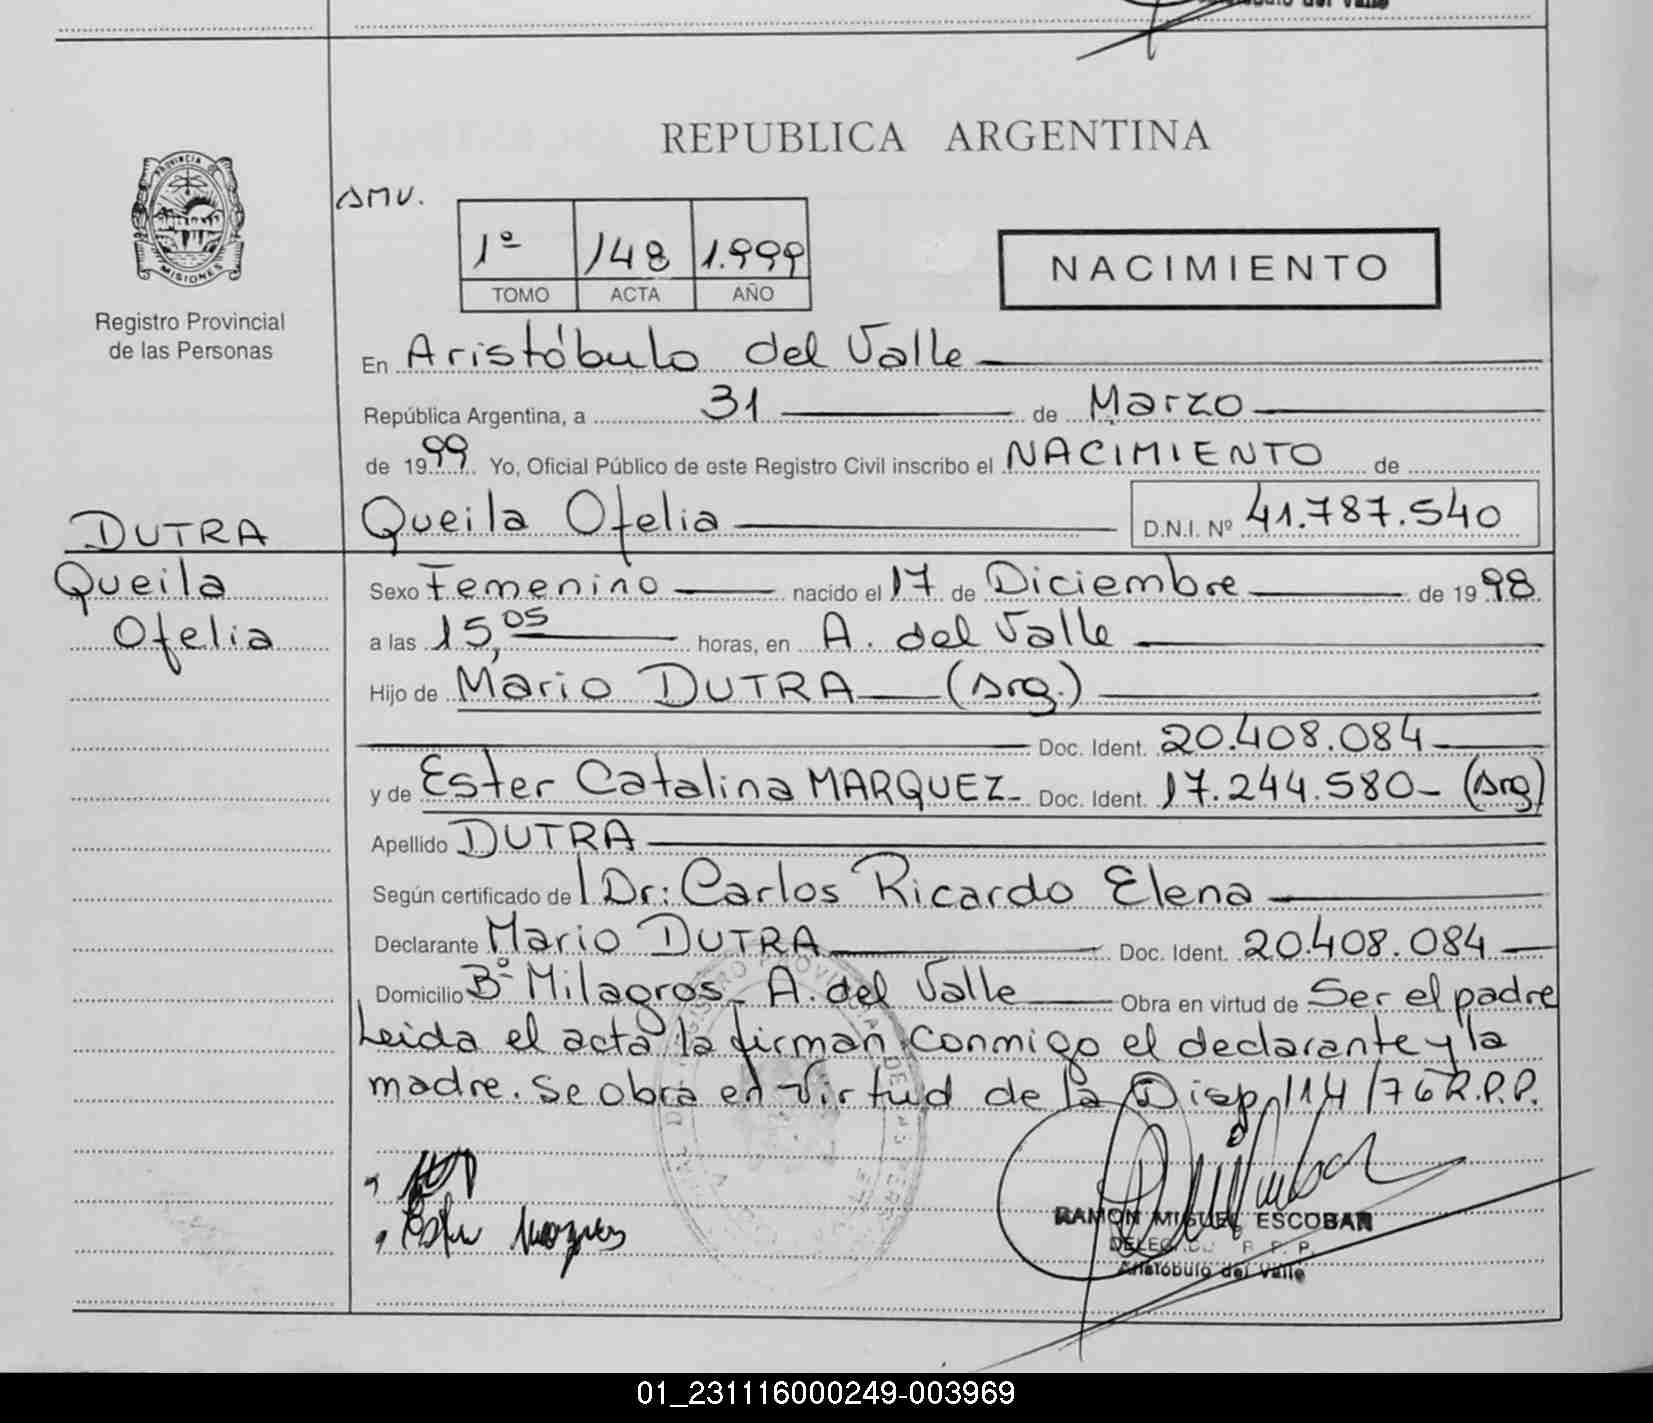 REPUBLICA ARGENTINA
PROVINCIA DE
MISIONES
Registro Provincial
de las Personas
1º 148 1.999
TOMO ACTA AÑO
NACIMIENTO
En Aristóbulo del Valle
República Argentina, a 31 de Marzo
de 1999 Yo, Oficial Público de este Registro Civil inscribo el NACIMIENTO de
DUTRA
Queila Ofelia
Queila Ofelia D.N.I. Nº 41.787.540
Sexo Femenino nacido el 17 de Diciembre de 1998
a las 15,05 horas, en A. del Valle
Hijo de Mario DUTRA (Arg.)
Doc. Ident. 20.408.084
y de Ester Catalina MARQUEZ Doc. Ident. 17.244.580 (Arg)
Apellido DUTRA
Según certificado del Dr: Carlos Ricardo Elena
Declarante Mario DUTRA Doc. Ident. 20.408.084
Domicilio Bº Milagros - A. del Valle Obra en virtud de Ser el padre
Leida el acta la firman conmigo el declarante y la
madre. Se obra en virtud de la Disp. 114/76 R.P.P.
RAMON MIGUEL ESCOBAR
DELEGADO R. P. P.
Aristóbulo del Valle
01_231116000249-003969